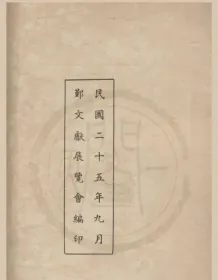 民國二十五年九月
鄞文獻展覽會編印